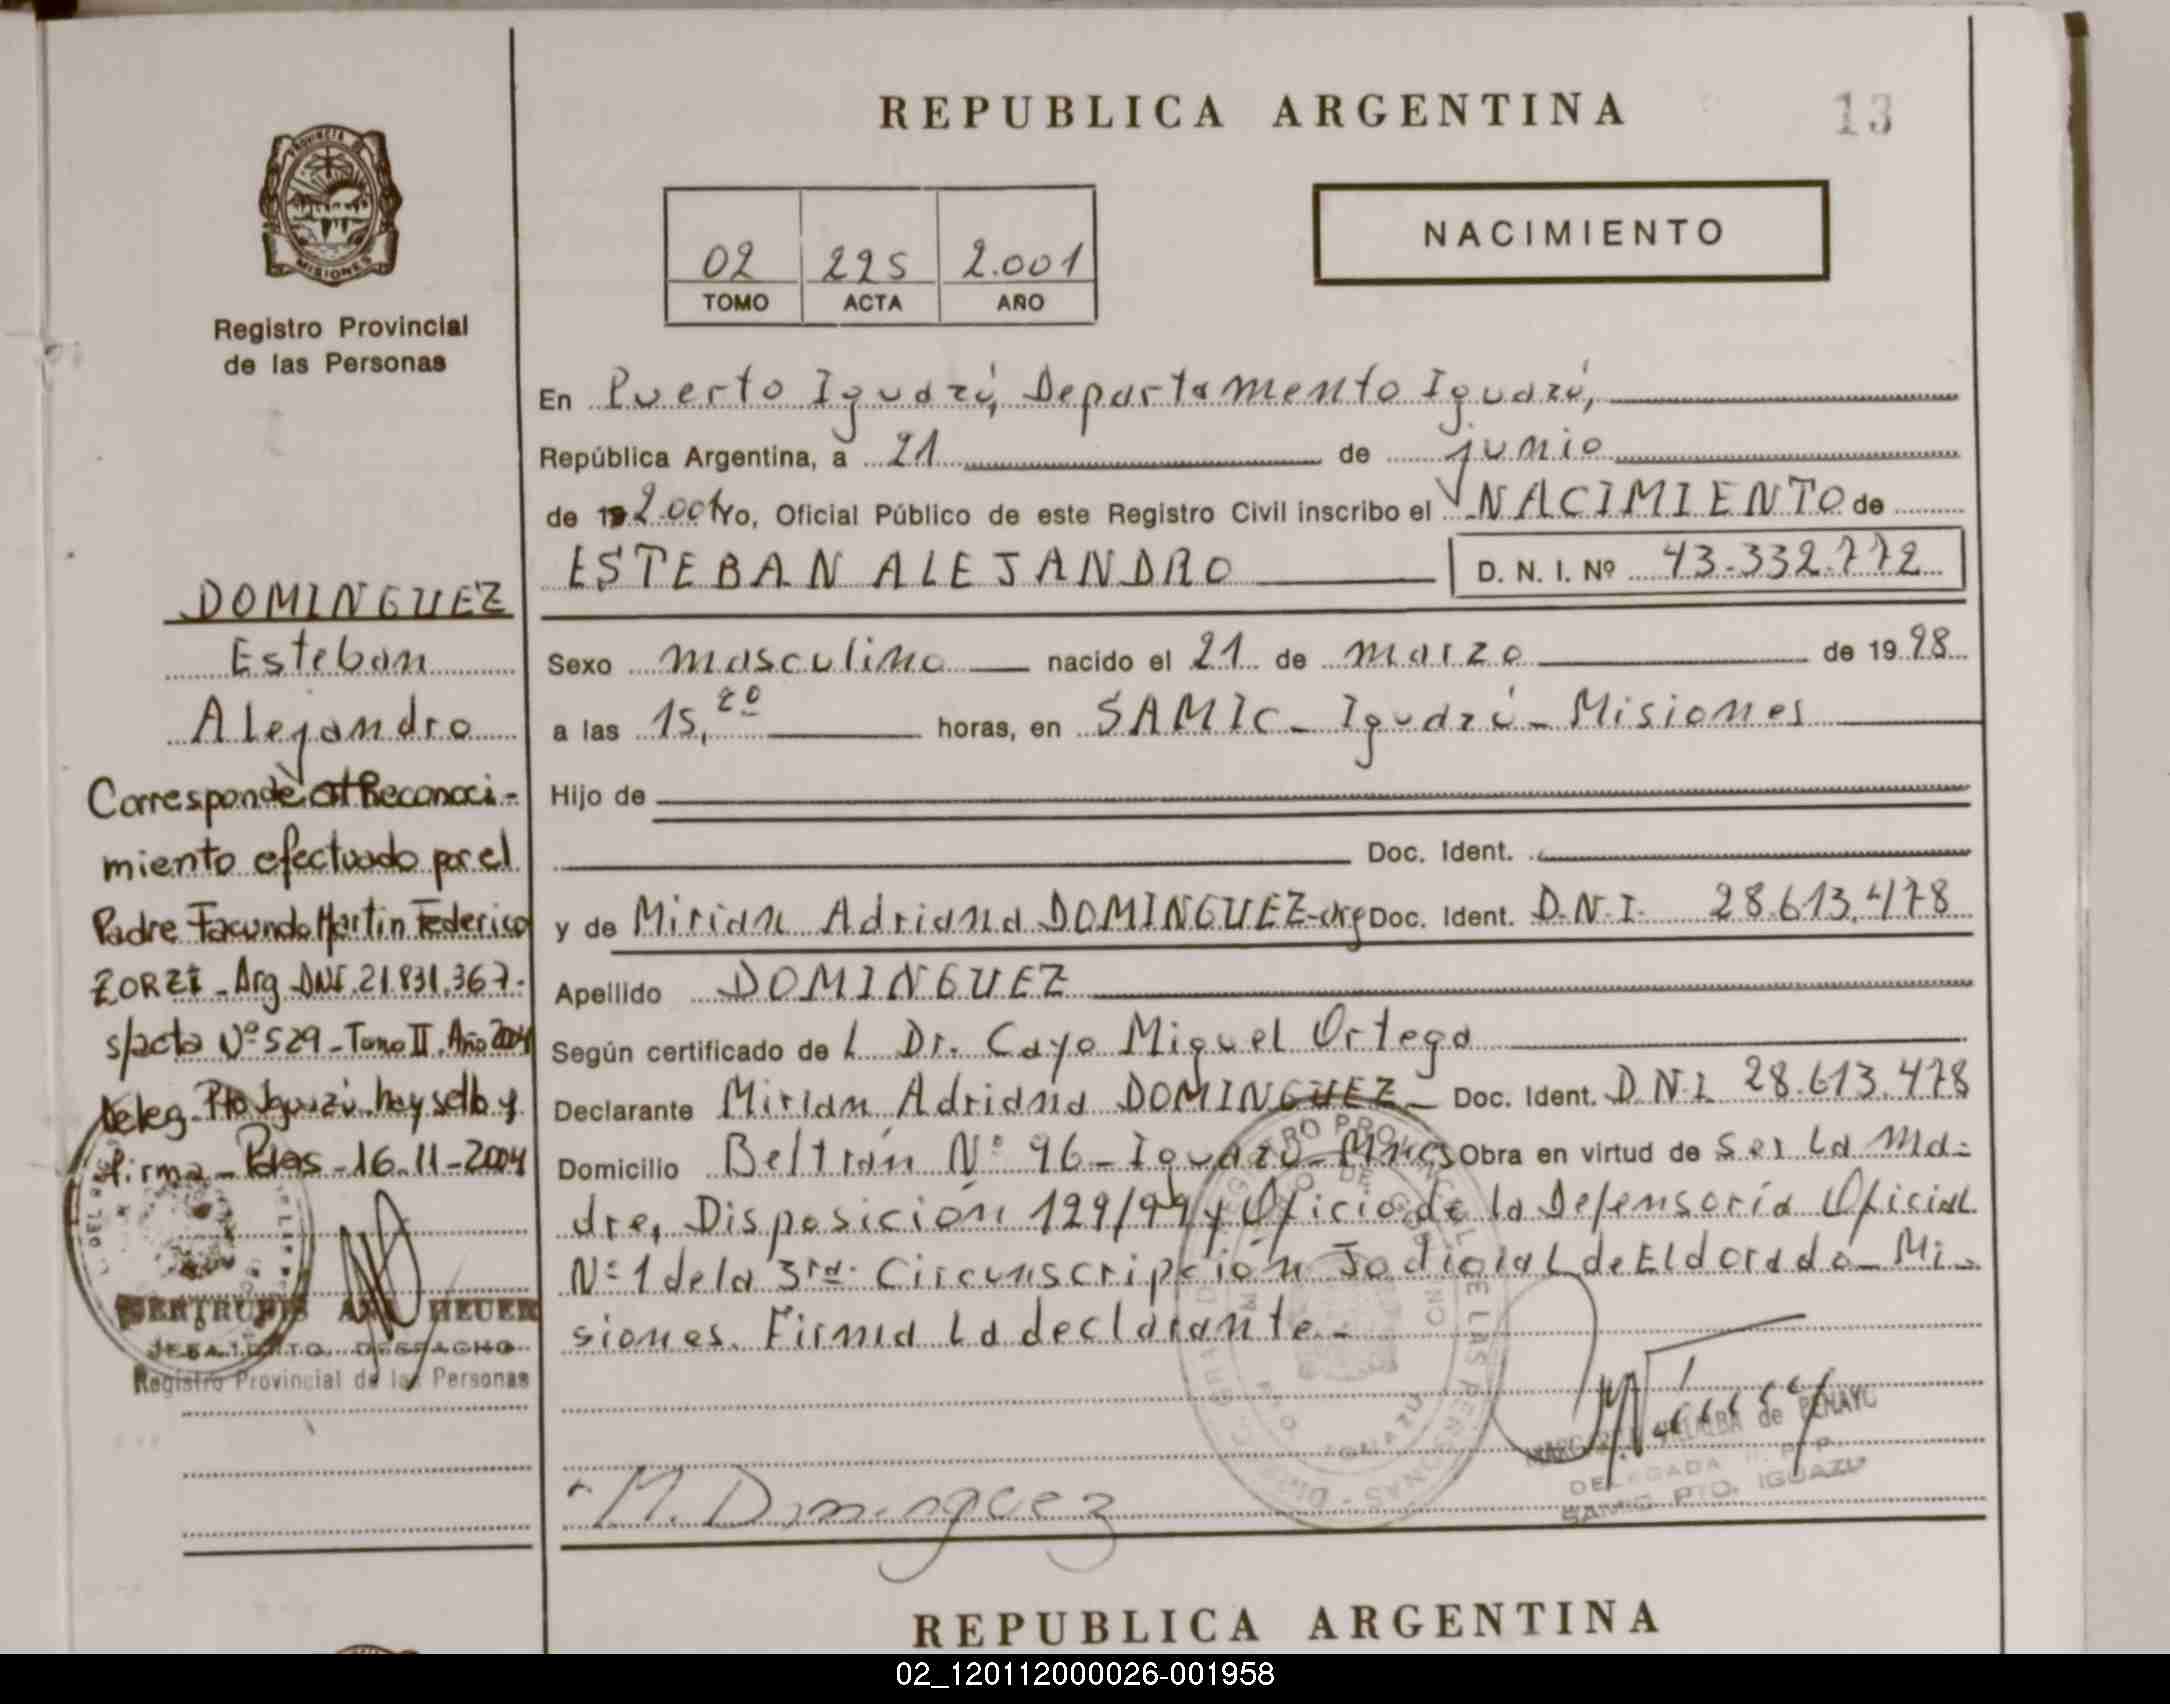 REPUBLICA ARGENTINA
13
PROVINCIA DE
MISIONES
Registro Provincial
de las Personas
02 225 2.001
TOMO ACTA AÑO
NACIMIENTO
En Puerto Iguazú, Departamento Iguazú,
República Argentina, a 21 de junio
de 19 2.001 Yo, Oficial Público de este Registro Civil inscribo el NACIMIENTO de
ESTEBAN ALEJANDRO D. N. I. Nº 43.332.772
Sexo masculino nacido el 21 de marzo de 19 98
a las 15,20 horas, en SAMIC - Iguazú - Misiones
Hijo de
Doc. Ident.
y de Mirian Adriana DOMINGUEZ-arg Doc. Ident. D.N.I. 28.613.478
Apellido DOMINGUEZ
Según certificado de l Dr. Cayo Miguel Ortega
Declarante Mirian Adriana DOMINGUEZ - Doc. Ident. D.N.I. 28.613.478
Domicilio Beltrán Nº 96 - Iguazú - Mnes Obra en virtud de ser la ma-
dre, Disposición 129/99 y Oficio de la Defensoría Oficial
Nº 1 de la 3ra. Circunscripción Judicial de Eldorado - Mi-
siones. Firma la declarante.-
M. Dominguez
VILLALBA de PENAYO
DELEGADA R. P. P.
SAMIC PTO. IGUAZU
DOMINGUEZ
Esteban
Alejandro
Corresponde al Reconoci-
miento efectuado por el
Padre Facundo Martin Federico
ZORZI - Arg DNI. 21.831.367-
s/acta Nº 529 - Tomo II. Año 2004
Deleg. Pto Iguazú. hay sello y
firma - Pdas - 16-11-2004
GERTRUDIS ANA HEUER
JEFA DPTO. DESPACHO
Registro Provincial de las Personas
REPUBLICA ARGENTINA
02_120112000026-001958